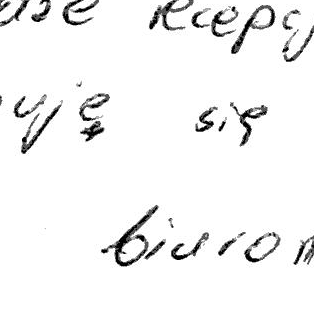 recepcj
uję się
biurom